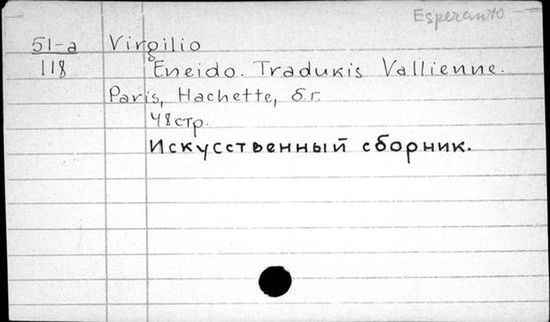 Esperanto
51-a Virgilio
118 Eneido. Tradukis Vallienne.
Paris, Hachette, б г.
48 стр.
Искусственный сборник.